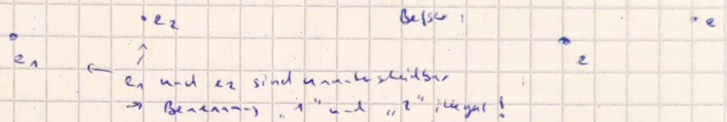 e₂ Besser: e
e₁ e
e₁ und e₂ sind ununterscheidbar
→ Benennung „1" und „2" illegal!